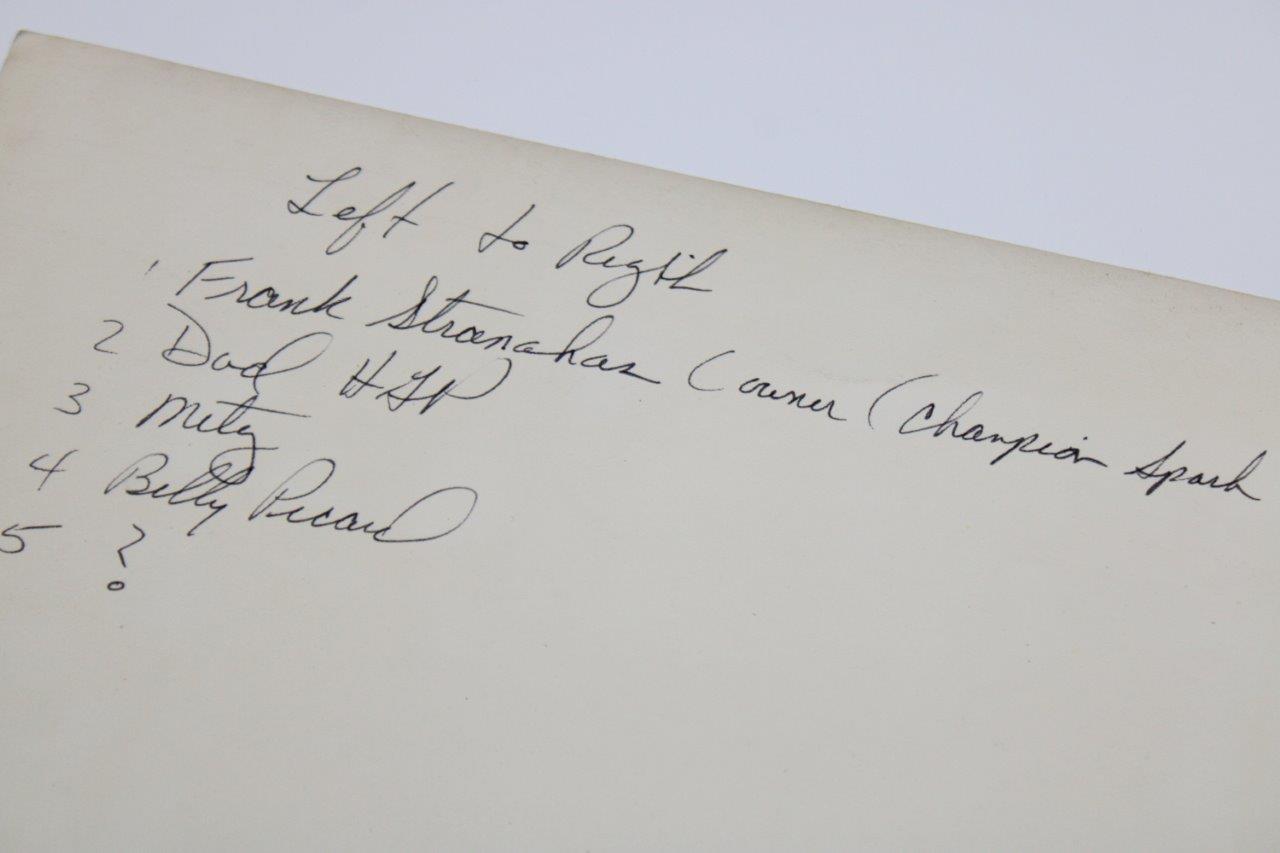 Left to Right
1 Frank Stranahan (owner (Champion Spark
2 Dad HGP
3 Metz
4 Billy Picard
5 ?